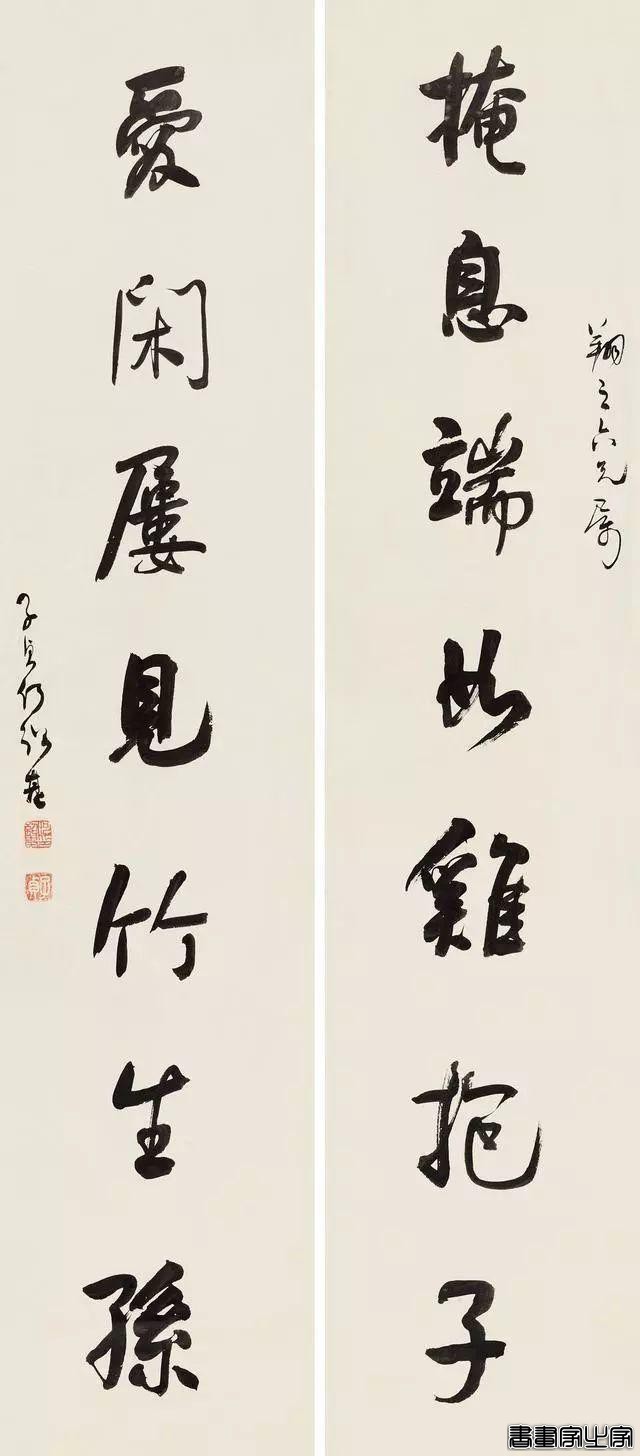 翔之六兄属
掩息端如雞抱子
愛閑屢見竹生孫
子貞何紹基
子貞
書畫家之家